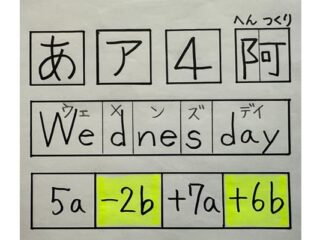 へん つくり
あ ア 4 阿
ウェ メ ン ズ デイ
Wednesday
5a -2b +7a +6b